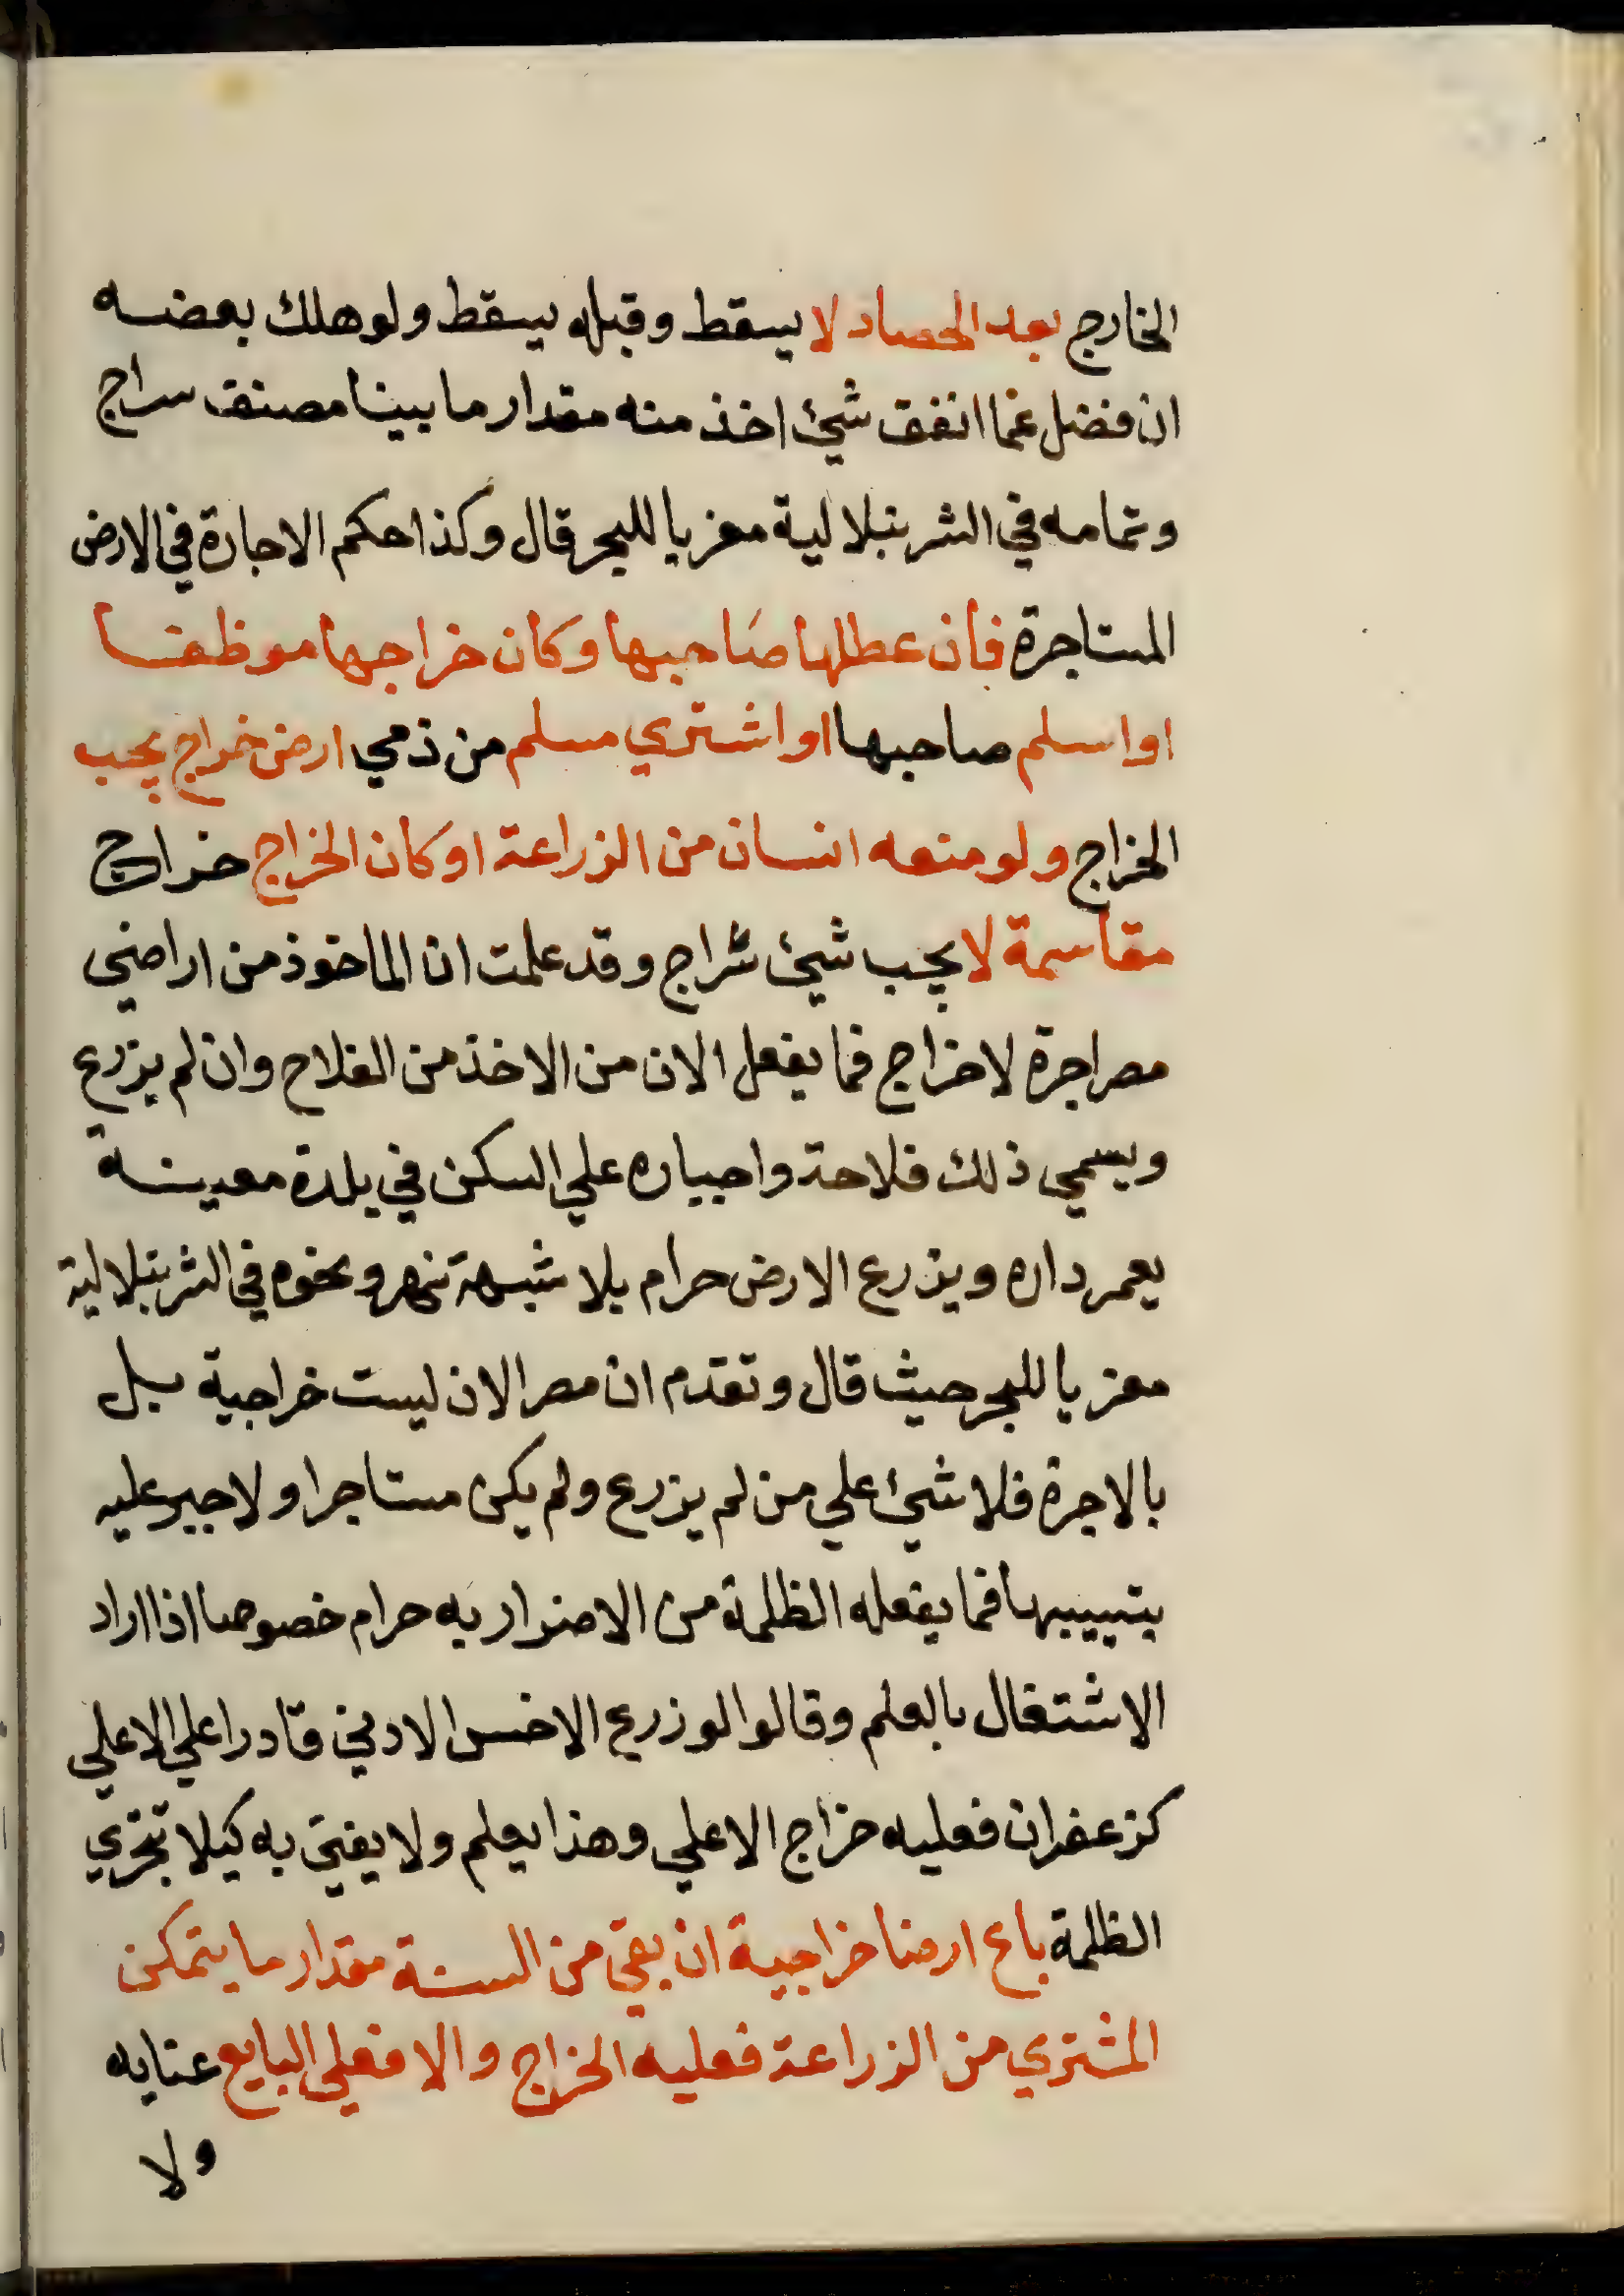 الخارج بعد الحصاد لا يسقط وقبله يسقط ولو هلك بعضه
ان فضل عما انفق شئ اخذ منه مقدار ما بينا مصنف سراج
وتمامه في الشرنبلالية معزيا للبحر قال وكذا حكم الاجارة في الارض
المستاجرة فان عطلها صاحبها وكان خراجها موظفا
او اسلم صاحبها او اشتري مسلم من ذمي ارض خراج يجب
الخراج ولو منعه انسان من الزراعة او كان الخراج خراج
مقاسمة لا يجب شئ سراج وقد علمت ان الماخوذ من اراضي
مصر اجرة لا خراج فما يفعل الان من الاخذ من الفلاح وان لم يزرع
ويسمي ذلك فلاحة واجباره علي السكن في بلدة معينة
يعمر داره ويزرع الارض حرام بلا شبهة نهر ونحوه في الشرنبلالية
معزيا للبحر حيث قال وتقدم ان مصر الان ليست خراجية بل
بالاجرة فلا شئ علي من لم يزرع ولم يكن مستاجرا ولا جبر عليه
بتسييبها فما يفعله الظلمة من الاضرار به حرام خصوصا اذا اراد
الاشتغال بالعلم وقالوا لو زرع الاخس الادني قادرا علي الاعلي
كزعفران فعليه خراج الاعلي وهذا يعلم ولا يفتي به كيلا تجري
الظلمة باع ارضا خراجية ان بقي من السنة مقدار ما يتمكن
المشتري من الزراعة فعليه الخراج والا فعلي البايع عنايه
ولا